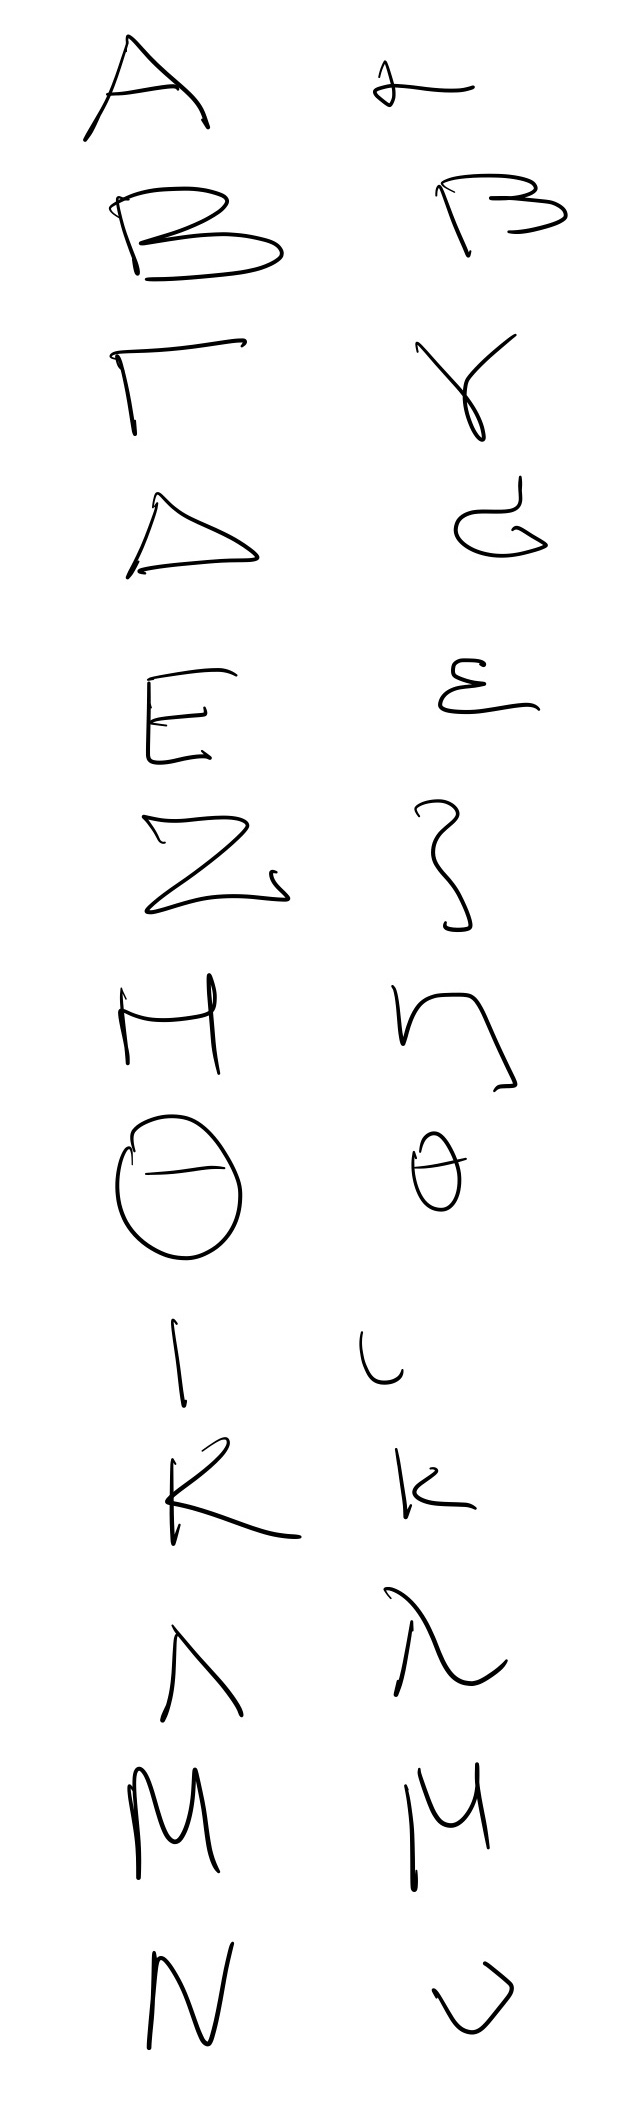 Α α
Β β
Γ γ
Δ δ
Ε ε
Ζ ζ
Η η
Θ θ
Ι ι
Κ κ
Λ λ
Μ μ
Ν ν